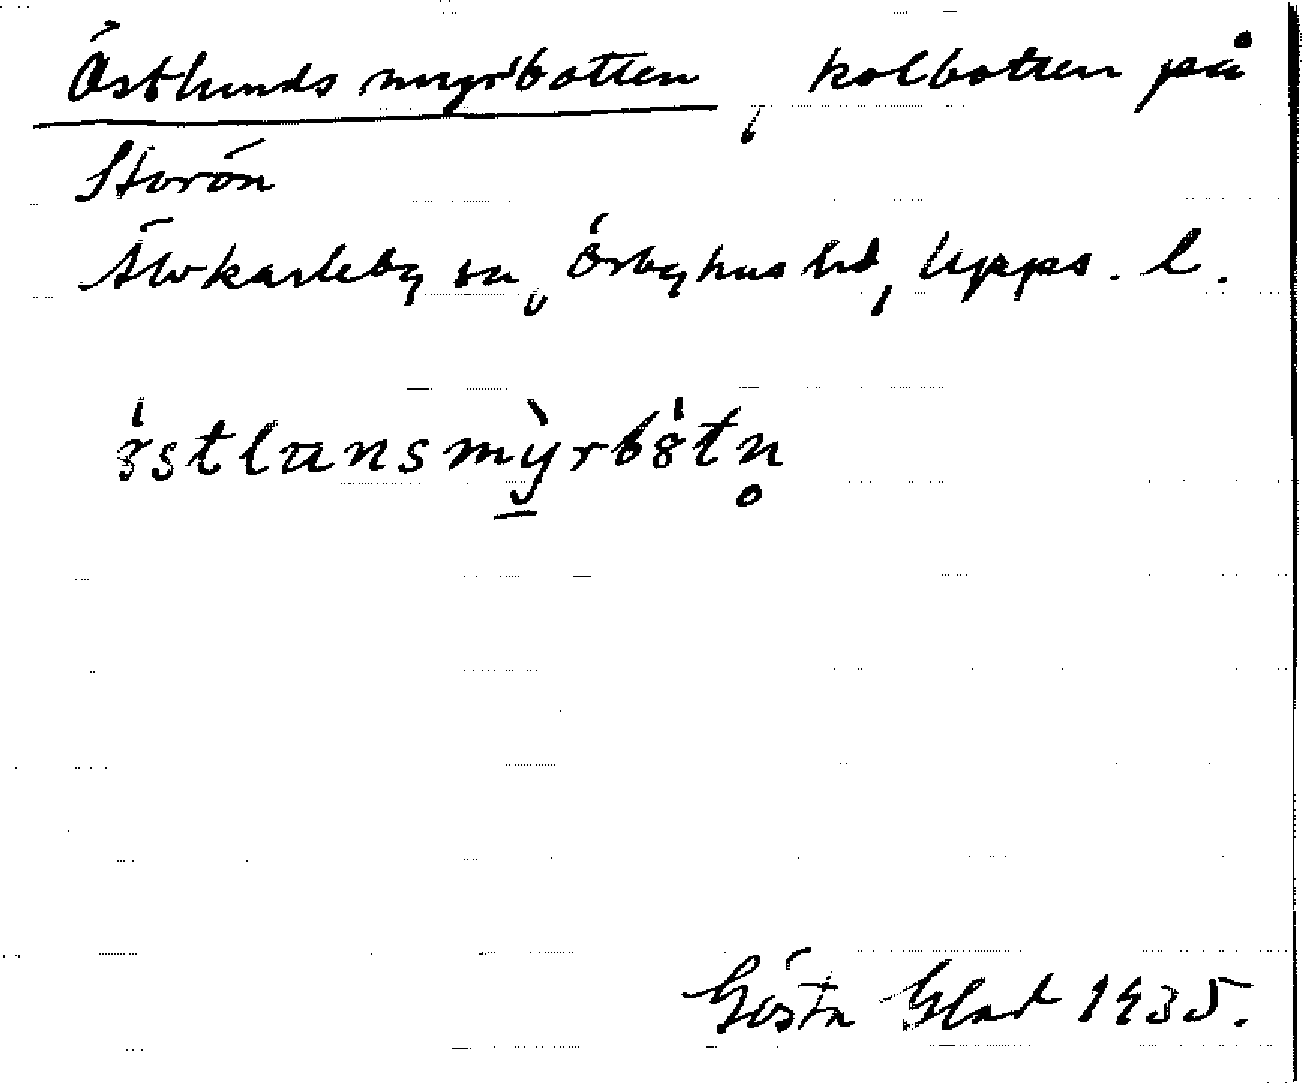 Östlunds myrbotten, kolbotten på
Storön
Älvkarleby sn, Örbyhus hd, Upps. l.
östlunsmỳrbòtn̥
Gösta Glad 1935.